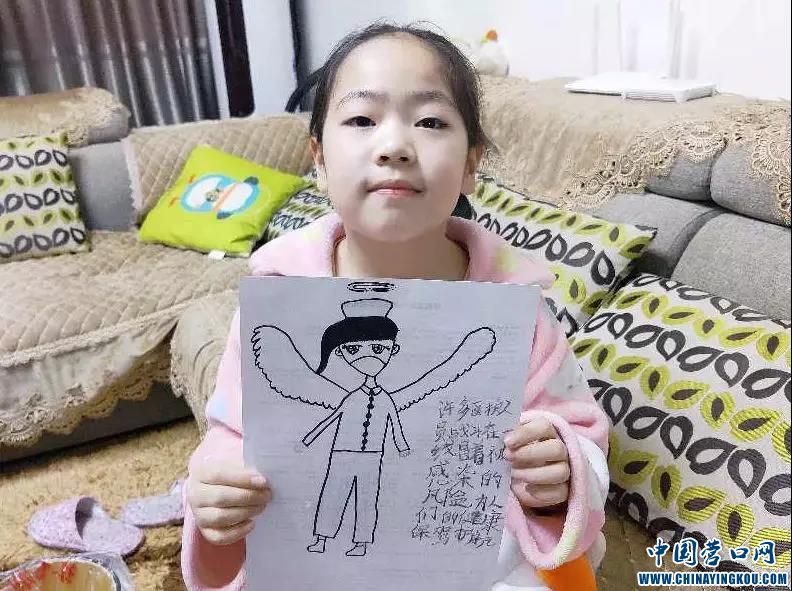 许多医护人
员战斗在
一线冒着被
感染的
风险为人
们的健康
保驾护航
中国营口网
WWW.CHINAYINGKOU.COM